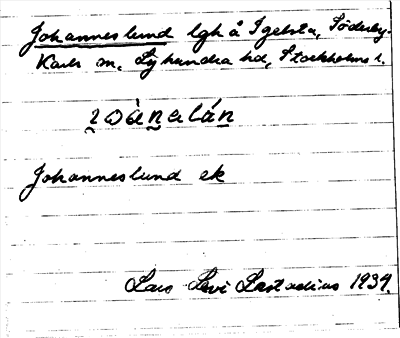 Johanneslund lgh å Igelsta, Söderby-
Karls sn, Lyhundra hd, Stockholms l.
Johanneslund ek
Lars Levi Læstadius 1934.